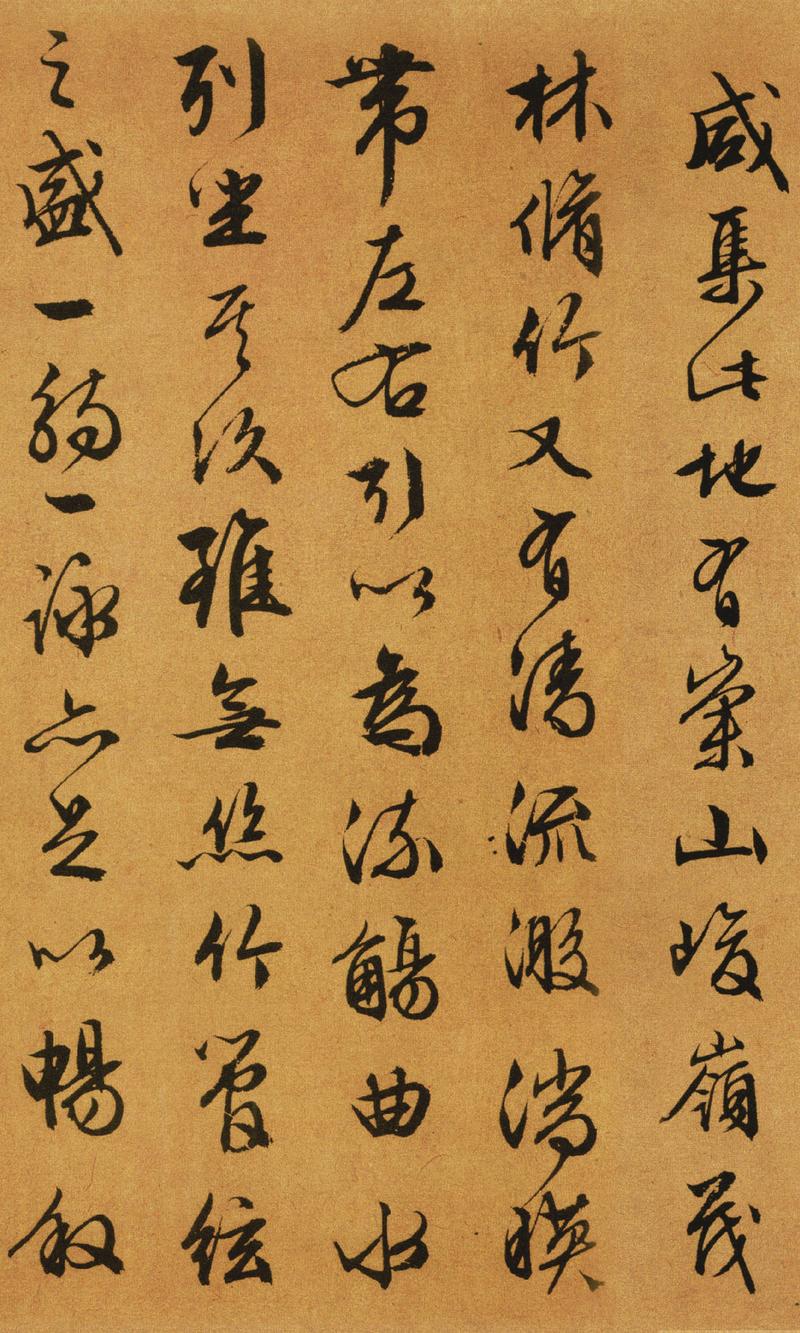 咸集此地有崇山峻嶺茂
林脩竹又有清流激湍暎
帶左右引以為流觴曲水
列坐其次雖無絲竹管絃
之盛一觴一詠亦足以暢敘